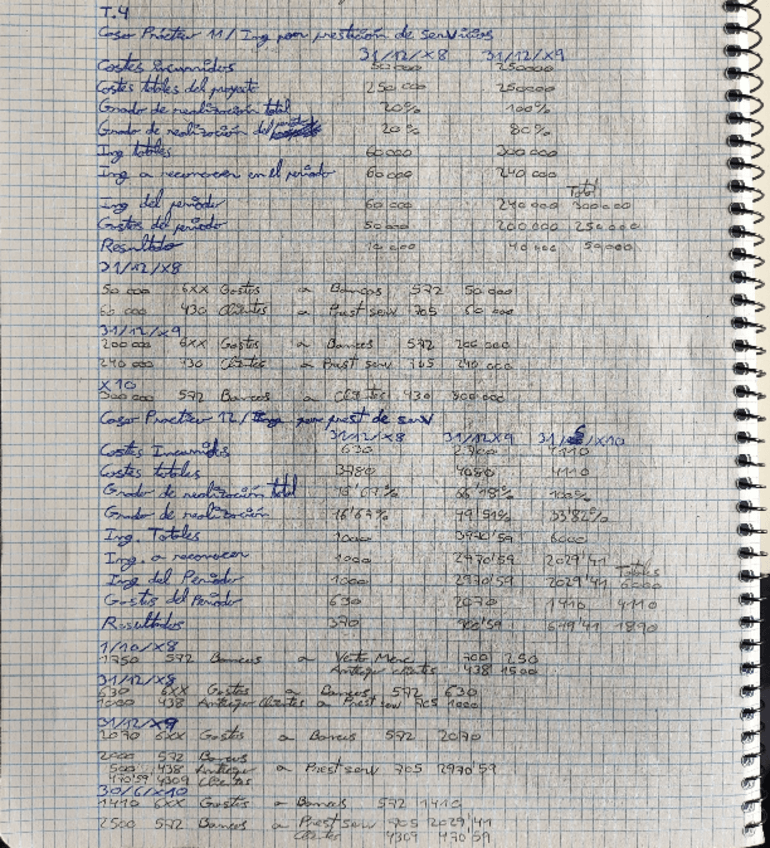 T.4
Caso Práctico 11 / Ing por prestación de servicios
31/12/X8 31/12/X9
Costes incurridos 50000 250000
Costes totales del proyecto 250000 250000
Grado de realización total 20% 100%
Grado de realización del 20% 80%
Ing totales 60000 300000
Ing. a reconocer en el periodo 60000 240000
Total
Ing del periodo 60000 240000 300000
Gastos del periodo 50000 200000 250000
Resultado 10000 40000 50000
31/12/X8
50000 6XX Gastos a Bancos 572 50000
60000 430 Clientes a Prest serv 705 60000
31/12/X9
200000 6XX Gastos a Bancos 572 200000
240000 430 Clientes a Prest serv 705 240000
X10
300000 572 Bancos a Clientes 430 300000
Caso Práctico 12 / Ing por prest de serv
31/12/X8 31/12/X9 31/6/X10
Costes Incurridos 630 2700 4110
Costes totales 3780 4080 4110
Grado de realización total 16'67% 66'18% 100%
Grado de realización 16'67% 49'51% 33'82%
Ing. Totales 1000 3970'59 6000
Ing. a reconocer 1000 2970'59 2029'41
Totales
Ing del Periodo 1000 2970'59 2029'41 6000
Gastos del Periodo 630 2070 1410 4110
Resultados 370 900'59 619'41 1890
1/10/X8
1750 572 Bancos a Venta Merc 700 250
Anticipo clientes 438 1500
31/12/X8
630 6XX Gastos a Bancos 572 630
1000 438 Anticipo Clientes a Prest serv 705 1000
31/12/X9
2070 6XX Gastos a Bancos 572 2070
2000 572 Bancos
500 438 Anticipo a Prest serv 705 2970'59
470'59 4309 Clientes
30/6/X10
1410 6XX Gastos a Bancos 572 1410
2500 572 Bancos a Prest serv 705 2029'41
Clientes 4309 470'59